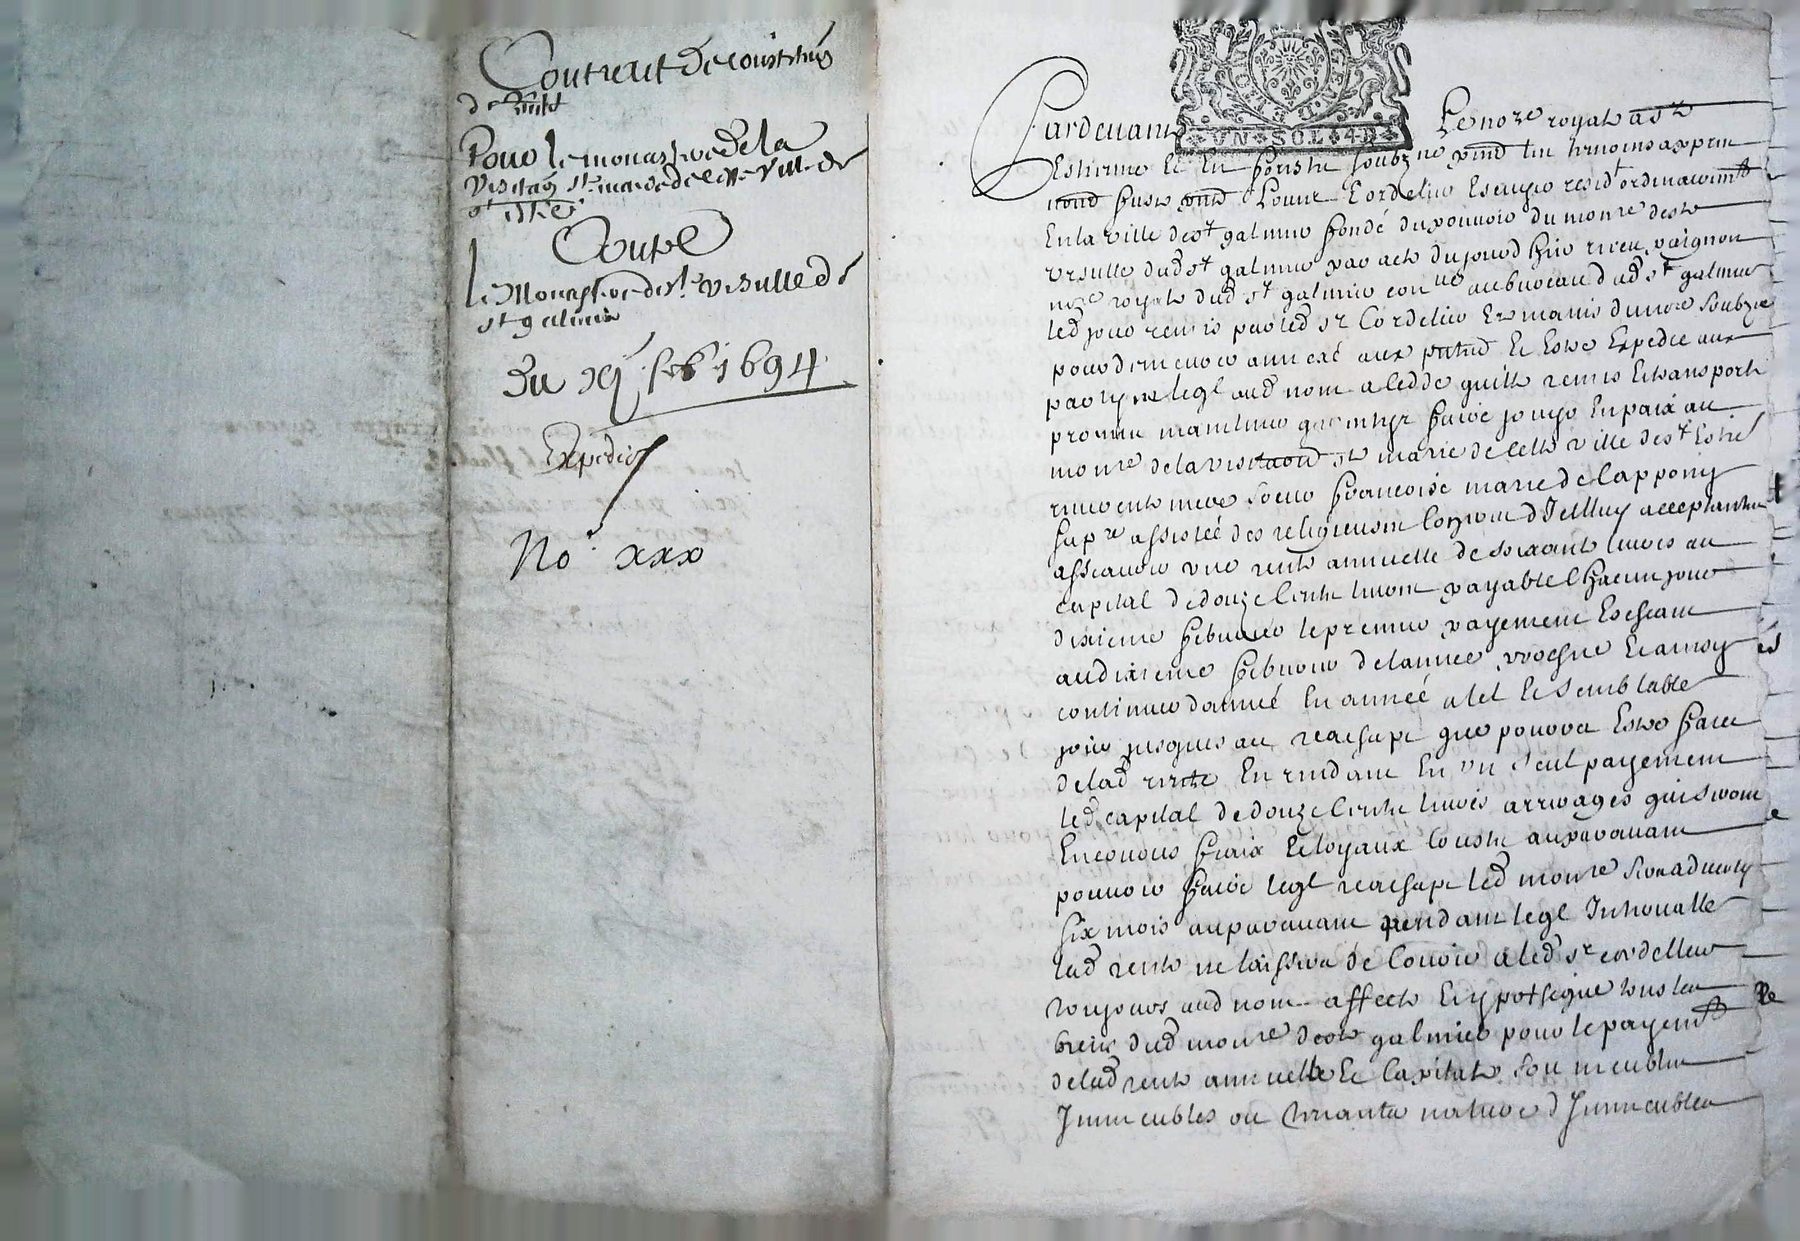 Contract de constit̃on
de rente
Pour le monastere de la
visitaõn ste marie de cette ville de
st Estie
Contre
le Monastere de ste vrsulle de
st galmier
Du xj feb 1694
Expedié
No. xxx
VN SOL 4D
Pardevant Le nore royal a st
Estienne Et En presence
Louis Cordelier Escuyer resid.t ordinairemt
En la ville de st galmier fondé du pouvoir du monre de ste
vrsulle dud st galmier par acte du jourd'huy receu paignon
nore royal dud st galmier au bureau dud st galmier
led jour remis par led sr Cordelier Es mains du nore soubzne
pour demeurer annexé aux pntes Et Estre Expedie aux
parties leql aud nom a cedde quitte remis Et transporte
promis maintenir garentyr faire jouyr En paix au
monre de la visitaon ste marie de cette ville de st Estie
Françoise Marie de lapponj
supre assistée des religieuses acceptante
assavoir vne rente annuelle de soixante livres au
capital de douze Cents livres payable Chacun jour
dixieme febvrier le premier payement Escheant
au dixieme febvrier de lannee proche Et ainsy
continuer d'année En année a tel Et semblable
jour jusques au reachapt que pourra Estre faict
de lad rente En rendant En vn seul payement
led capital de douze Cents livres arrerages qui seront
Encourus fraix Et loyaux Cousts auparavant
pouvoir faire leql reachapt led monre sera adverty
six mois auparavant pendant leql Intervalle
lad rente ne laissera de Courir a led sr Cordellier
tousjours aud nom affecté Et ypotheque tous les
biens dud monre de ste galmier pour le payemt
de lad rente annuelle Et Capital soit meubles
Immeubles ou tenants nature d'Immeubles